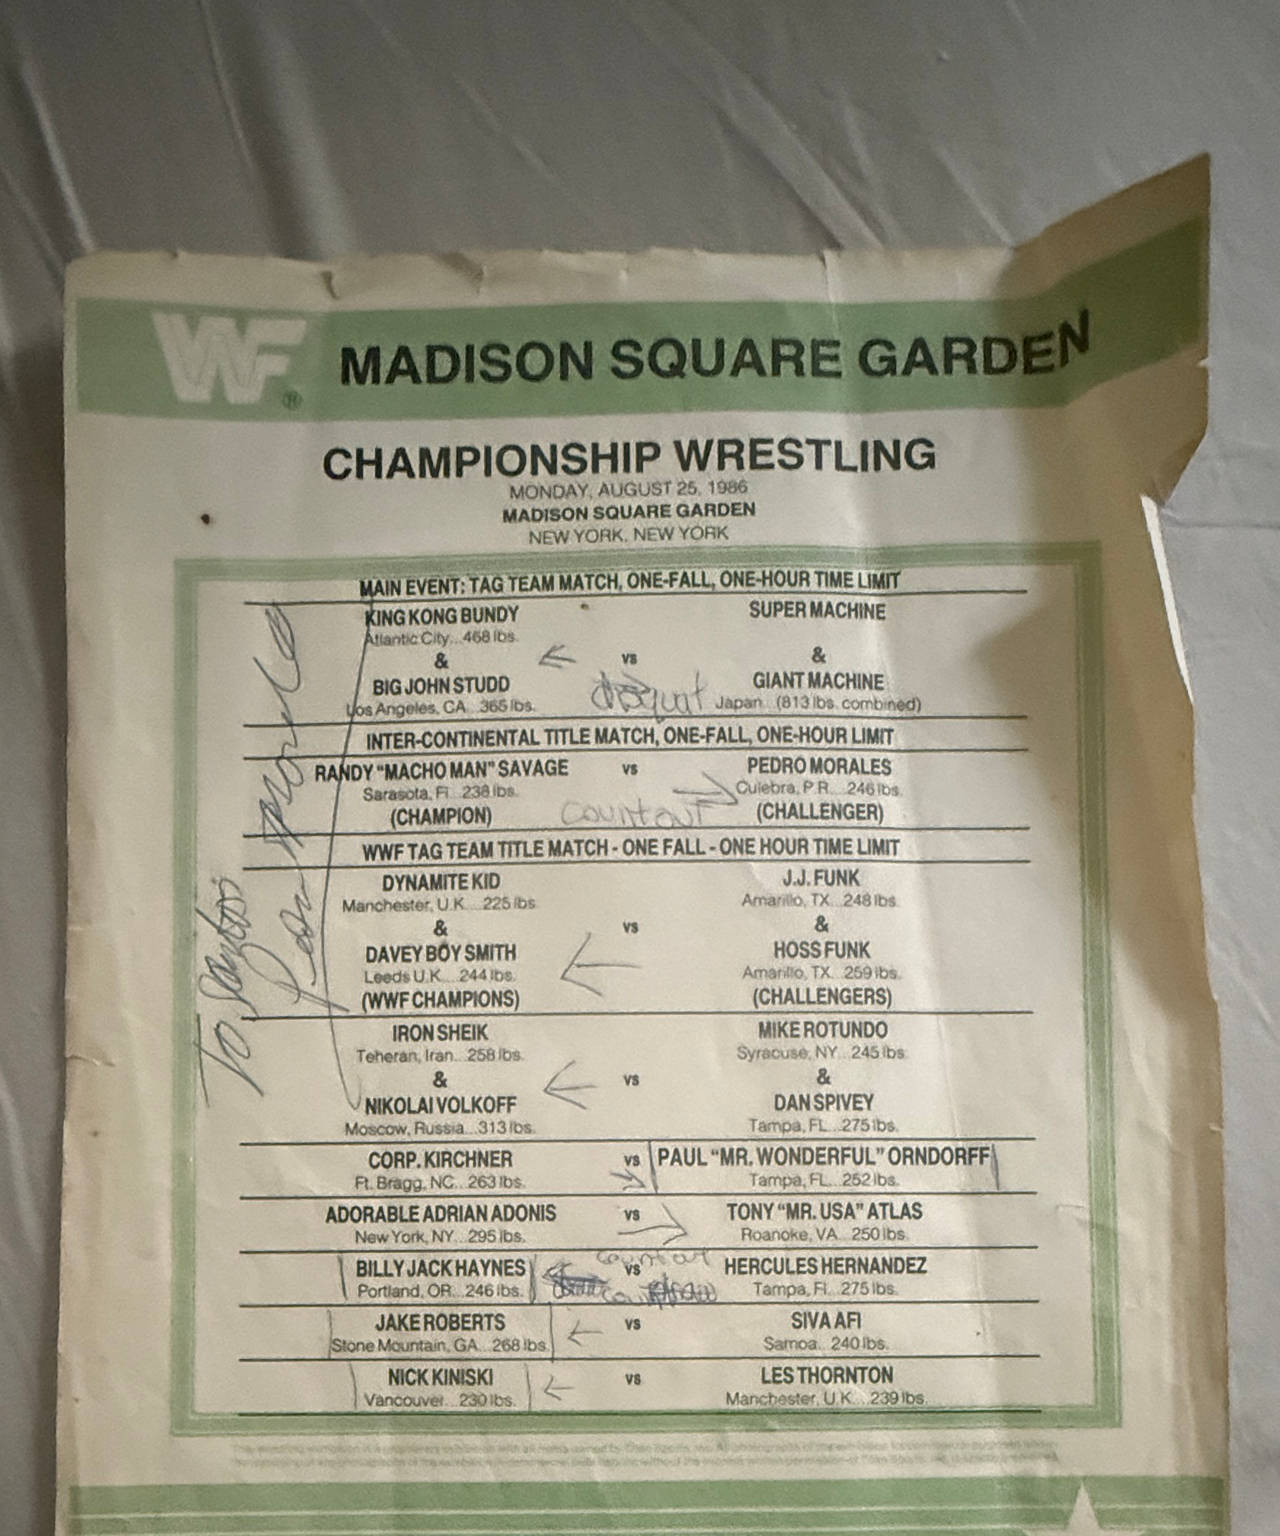 WF®
MADISON SQUARE GARDEN
CHAMPIONSHIP WRESTLING
MONDAY, AUGUST 25, 1986
MADISON SQUARE GARDEN
NEW YORK, NEW YORK
MAIN EVENT: TAG TEAM MATCH, ONE-FALL, ONE-HOUR TIME LIMIT
KING KONG BUNDY SUPER MACHINE
Atlantic City...468 lbs.
& vs &
BIG JOHN STUDD GIANT MACHINE
Los Angeles, CA...365 lbs. disqual Japan...(813 lbs. combined)
INTER-CONTINENTAL TITLE MATCH, ONE-FALL, ONE-HOUR LIMIT
RANDY "MACHO MAN" SAVAGE vs PEDRO MORALES
Sarasota, Fl...238 lbs. Culebra, P.R....246 lbs.
(CHAMPION) countout (CHALLENGER)
WWF TAG TEAM TITLE MATCH - ONE FALL - ONE HOUR TIME LIMIT
DYNAMITE KID J.J. FUNK
Manchester, U.K....225 lbs. Amarillo, TX...248 lbs.
& vs &
DAVEY BOY SMITH HOSS FUNK
Leeds U.K....244 lbs. Amarillo, TX...259 lbs.
(WWF CHAMPIONS) (CHALLENGERS)
IRON SHEIK MIKE ROTUNDO
Teheran, Iran...258 lbs. Syracuse, NY...245 lbs.
& vs &
NIKOLAI VOLKOFF DAN SPIVEY
Moscow, Russia...313 lbs. Tampa, FL...275 lbs.
CORP. KIRCHNER vs PAUL "MR. WONDERFUL" ORNDORFF
Ft. Bragg, NC...263 lbs. Tampa, FL...252 lbs.
ADORABLE ADRIAN ADONIS vs TONY "MR. USA" ATLAS
New York, NY...295 lbs. Roanoke, VA...250 lbs.
countout
BILLY JACK HAYNES vs HERCULES HERNANDEZ
Portland, OR...246 lbs. Tampa, Fl...275 lbs.
JAKE ROBERTS vs SIVA AFI
Stone Mountain, GA...268 lbs. Samoa...240 lbs.
NICK KINISKI vs LES THORNTON
Vancouver...230 lbs. Manchester, U.K....239 lbs.
To
Pedro Morales